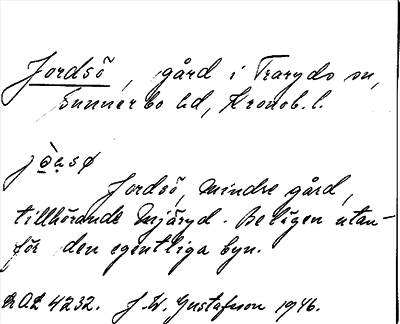 Jordsö, gård i Traryds sn,
Sunnerbo hd, Kronob. l.
jò̤a̤sø
Jordsö, mindre gård,
tillhörande Mjäryd. Belägen utan-
för den egentliga byn.
RAÄ 4232. J. W. Gustafsson 1946.